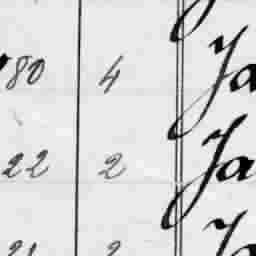 80 4 Ja
22 2 Ja
21 2 Ja